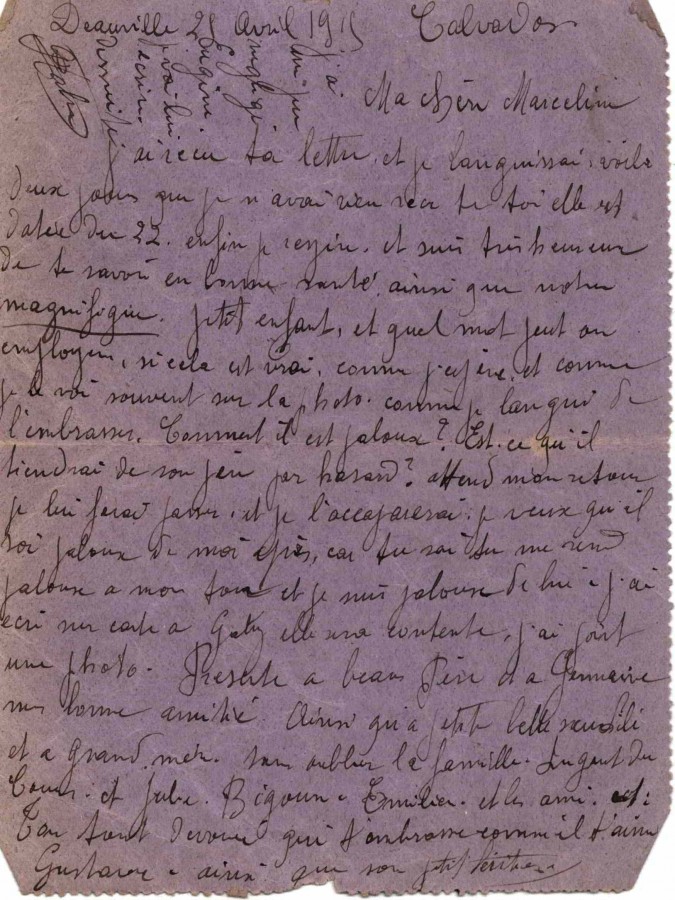 Deauville 25 Avril 1915 Calvados
j'ai
un peu
negligé
Eugène
je vai lui
ecrire
Ma chère Marceline
j'ai recu ta lettre, et je languissai, voila
deux jours que je n'avai rien recu de toi elle est
datée du 22. enfin je respire. et suis très heureux
de te savoir en bonne santé ainsi que notre
magnifique. petit enfant, et quel mot peut on
employer, si cela est vrai, comme j'espère, et comme
je le voi souvent sur la photo. comme je langui de
l'embrasser. Comment il est jaloux? Est-ce qu'il
tiendrai de son père par hasard? attend mon retour
je lui ferai passer, et je l'accaparerai. je veux qu'il
soi jaloux de moi après, car tu sai tu me rend
jaloux a mon tour et je suis jaloux de lui. j'ai
ecri sur carte a Gaby elle sera contente, j'ai joint
une photo. Presente a beau Père et a Germaine
mes bonne amitié. Ainsi qu'a petite belle sœur
et a Grand. mère. sans oublier la famille.
Cours. et Julie. Bigoun. Emilien. et les ami. et:
Ton tout devoué qui t'embrasse comme il t'aime
Gustave. ainsi que son petit